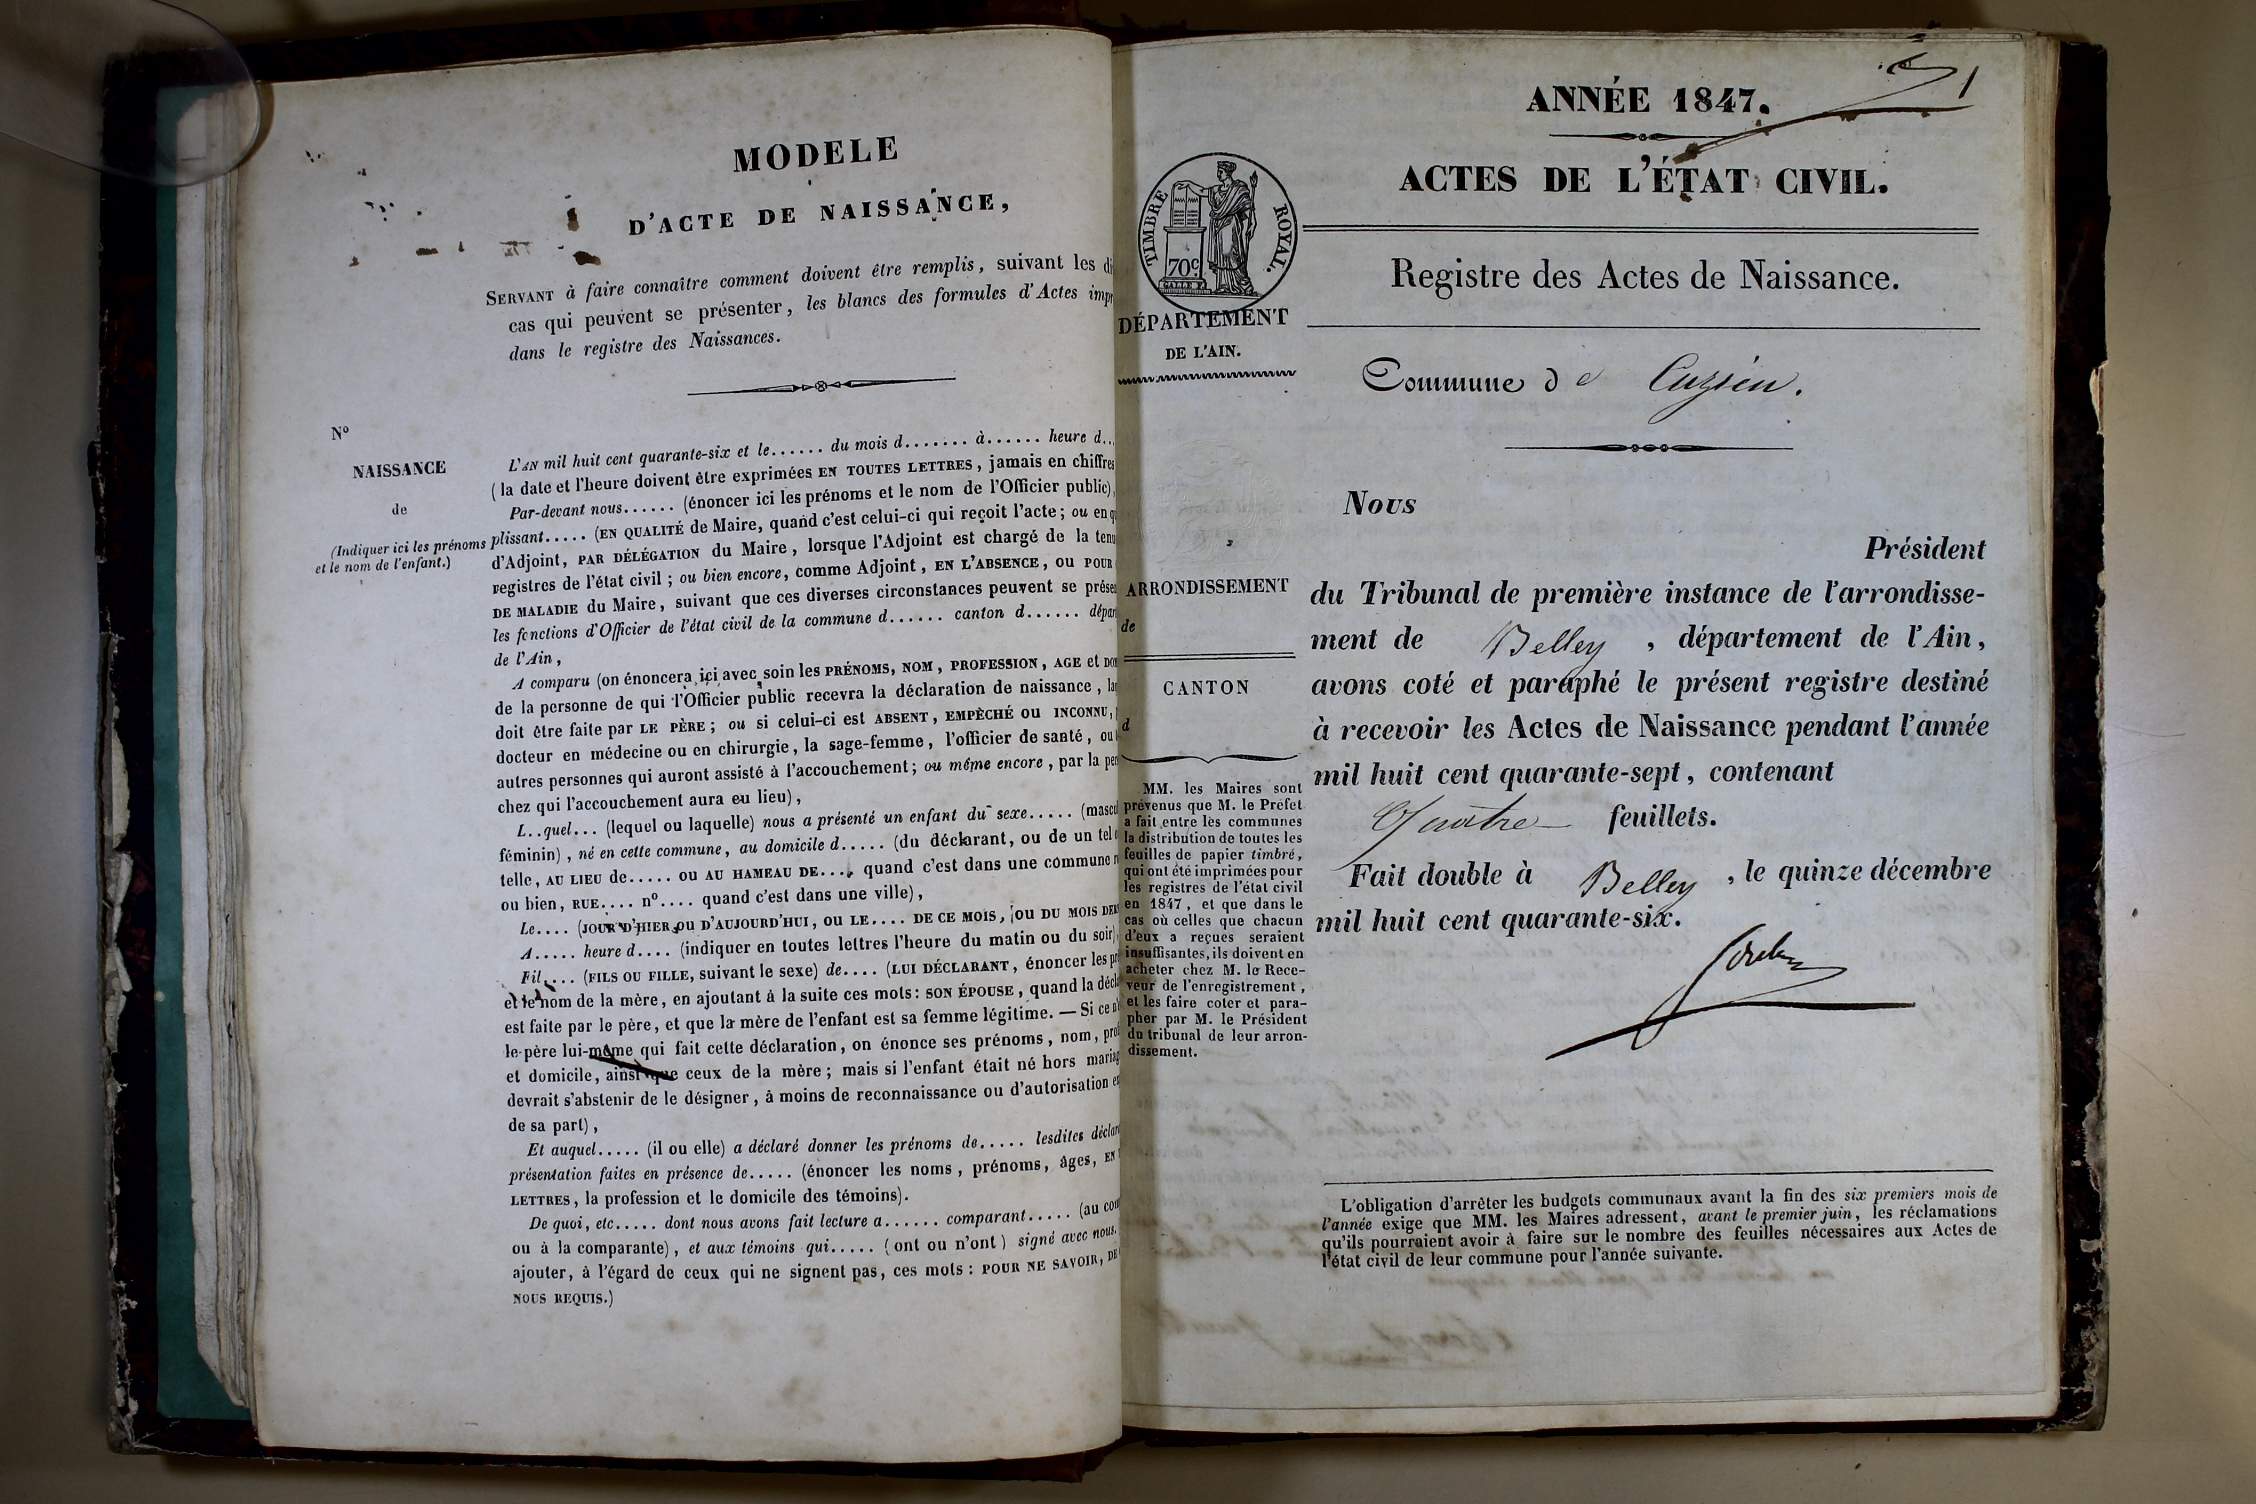 MODELE
D'ACTE DE NAISSANCE,
SERVANT à faire connaître comment doivent être remplis, suivant les di
cas qui peuvent se présenter, les blancs des formules d'Actes impr
dans le registre des Naissances.
N°
NAISSANCE
de
(Indiquer ici les prénoms
et le nom de l'enfant.)
L'AN mil huit cent quarante-six et le...... du mois d....... à...... heure d...
( la date et l'heure doivent être exprimées EN TOUTES LETTRES, jamais en chiffres
Par-devant nous...... (énoncer ici les prénoms et le nom de l'Officier public),
plissant..... (EN QUALITÉ de Maire, quand c'est celui-ci qui reçoit l'acte; ou en q
d'Adjoint, PAR DÉLÉGATION du Maire, lorsque l'Adjoint est chargé de la tenu
registres de l'état civil; ou bien encore, comme Adjoint, EN L'ABSENCE, ou POUR
DE MALADIE du Maire, suivant que ces diverses circonstances peuvent se prése
les fonctions d'Officier de l'état civil de la commune d...... canton d...... dépar
de l'Ain,
A comparu (on énoncera ici avec soin les PRÉNOMS, NOM, PROFESSION, AGE et DOM
de la personne de qui l'Officier public recevra la déclaration de naissance, la
doit être faite par LE PÈRE; ou si celui-ci est ABSENT, EMPÊCHÉ ou INCONNU,
docteur en médecine ou en chirurgie, la sage-femme, l'officier de santé, ou
autres personnes qui auront assisté à l'accouchement; ou même encore, par la per
chez qui l'accouchement aura eu lieu),
L..quel... (lequel ou laquelle) nous a présenté un enfant du sexe..... (mascu
féminin), né en cette commune, au domicile d..... (du déclarant, ou de un tel o
telle, AU LIEU de..... ou AU HAMEAU DE...., quand c'est dans une commune r
ou bien, RUE.... n°.... quand c'est dans une ville),
Le.... (JOUR D'HIER OU D'AUJOURD'HUI, OU LE.... DE CE MOIS, OU DU MOIS DER
A..... heure d.... (indiquer en toutes lettres l'heure du matin ou du soir),
Fil.... (FILS OU FILLE, suivant le sexe) de.... (LUI DÉCLARANT, énoncer les pr
et le nom de la mère, en ajoutant à la suite ces mots: SON ÉPOUSE, quand la décla
est faite par le père, et que la mère de l'enfant est sa femme légitime. — Si ce n'
le père lui-même qui fait cette déclaration, on énonce ses prénoms, nom, prof
et domicile, ainsi que ceux de la mère; mais si l'enfant était né hors mariag
devrait s'abstenir de le désigner, à moins de reconnaissance ou d'autorisation e
de sa part),
Et auquel..... (il ou elle) a déclaré donner les prénoms de..... lesdites déclar
présentation faites en présence de..... (énoncer les noms, prénoms, âges, EN
LETTRES, la profession et le domicile des témoins).
De quoi, etc..... dont nous avons fait lecture a...... comparant..... (au com
ou à la comparante), et aux témoins qui..... (ont ou n'ont) signé avec nous.
ajouter, à l'égard de ceux qui ne signent pas, ces mots: POUR NE SAVOIR, DE
NOUS REQUIS.)
1
ANNÉE 1847.
ACTES DE L'ÉTAT CIVIL.
TIMBRE ROYAL.
70c
Registre des Actes de Naissance.
DÉPARTEMENT
DE L'AIN.
Commune de Cuzieu.
ARRONDISSEMENT
de
CANTON
d
MM. les Maires sont
prévenus que M. le Préfet
a fait entre les communes
la distribution de toutes les
feuilles de papier timbré,
qui ont été imprimées pour
les registres de l'état civil
en 1847, et que dans le
cas où celles que chacun
d'eux a reçues seraient
insuffisantes, ils doivent en
acheter chez M. le Rece-
veur de l'enregistrement,
et les faire coter et para-
pher par M. le Président
du tribunal de leur arron-
dissement.
Nous
Président
du Tribunal de première instance de l'arrondisse-
ment de Belley, département de l'Ain,
avons coté et paraphé le présent registre destiné
à recevoir les Actes de Naissance pendant l'année
mil huit cent quarante-sept, contenant
Quatre feuillets.
Fait double à Belley, le quinze décembre
mil huit cent quarante-six.
L'obligation d'arrêter les budgets communaux avant la fin des six premiers mois de
l'année exige que MM. les Maires adressent, avant le premier juin, les réclamations
qu'ils pourraient avoir à faire sur le nombre des feuilles nécessaires aux Actes de
l'état civil de leur commune pour l'année suivante.